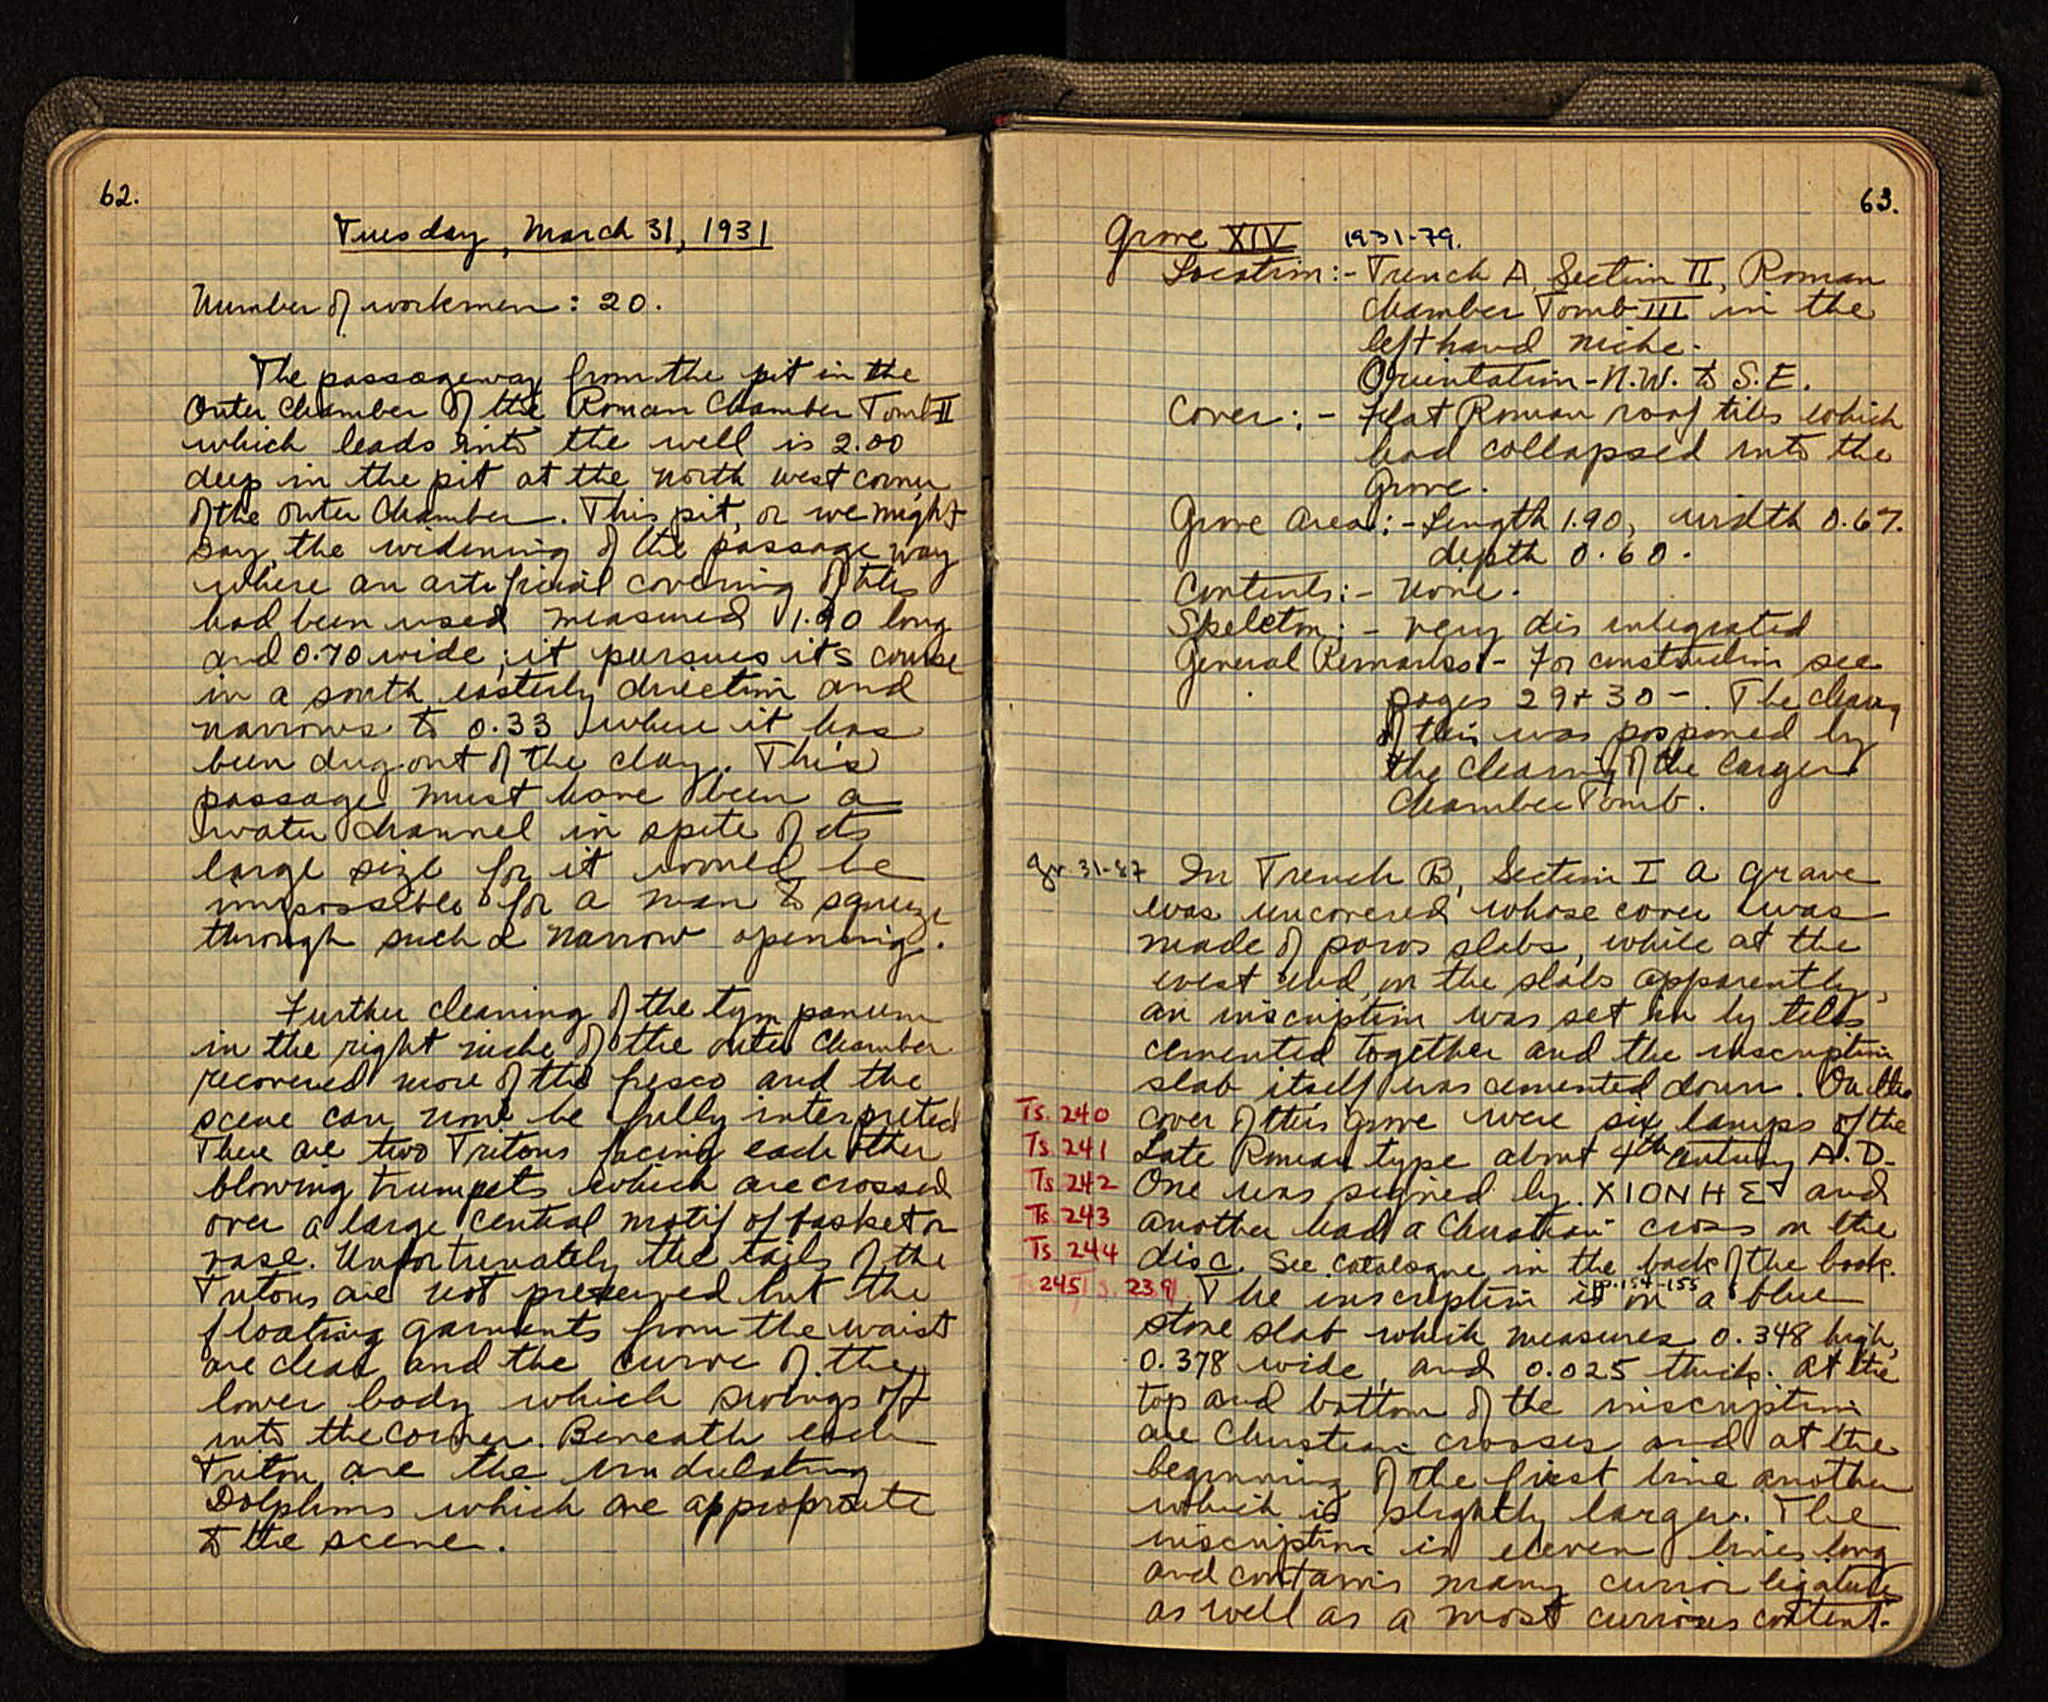 62.
Tuesday, March 31, 1931
Number of workmen: 20.
The passageway from the pit in the
Outer Chamber of the Roman Chamber Tomb II
which leads into the well is 2.00
deep in the pit at the north west corner
of the outer Chamber. This pit, or we might
say, the widening of the passage way
where an artificial covering of tiles
had been used measured 1.90 long
and 0.70 wide; it pursues its course
in a south easterly direction and
narrows to 0.33 where it has
been dug out of the clay. This
passage must have been a
water channel in spite of its
large size for it would be
impossible for a man to squeeze
through such a narrow opening.
Further cleaning of the tympanum
in the right niche of the outer Chamber
recovered more of the fresco and the
scene can now be fully interpreted
There are two Tritons facing each other
blowing trumpets which are crossed
over a large central motif of basket or
vase. Unfortunately the tails of the
Tritons are not preserved but the
floating garments from the waist
are clear and the curve of the
lower body which swings off
into the corner. Beneath each
Triton are the undulating
Dolphins which are appropriate
to the scene.
63.
Grave XIV 1931-79.
Location:- Trench A, Section II, Roman
Chamber Tomb III in the
left hand niche.
Orientation - N.W. to S.E.
Cover:- Flat Roman roof tiles which
had collapsed into the
Grave.
Grave Area:- Length 1.90, width 0.67.
depth 0.60.
Contents:- None.
Skeleton:- very disintegrated
General Remarks:- For construction see
pages 29 + 30 -. The clearing
of this was posponed by
the clearing of the larger
Chamber Tomb.
gr. 31-87 In Trench B, Section I a grave
was uncovered whose cover was
made of poros slabs, while at the
west end, on the slabs apparently,
an inscription was set in by tiles
cemented together and the inscription
slab itself was cemented down. On the
Ts. 240 cover of this grave were six lamps of the
Ts. 241 Late Roman type about 4th century A.D.
Ts. 242 One was signed by XIONHΣ and
Ts. 243 another had a Christian cross on the
Ts. 244 disc. See catalogue in the back of the book.
pp. 154-155
245 Ts. 239 The inscription is on a blue
stone slab which measures 0.348 high,
0.378 wide, and 0.025 thick. At the
top and bottom of the inscription
are Christian crosses and at the
beginning of the first line another
which is slightly larger. The
inscription is eleven lines long
and contains many ligatures
as well as a most curious content.